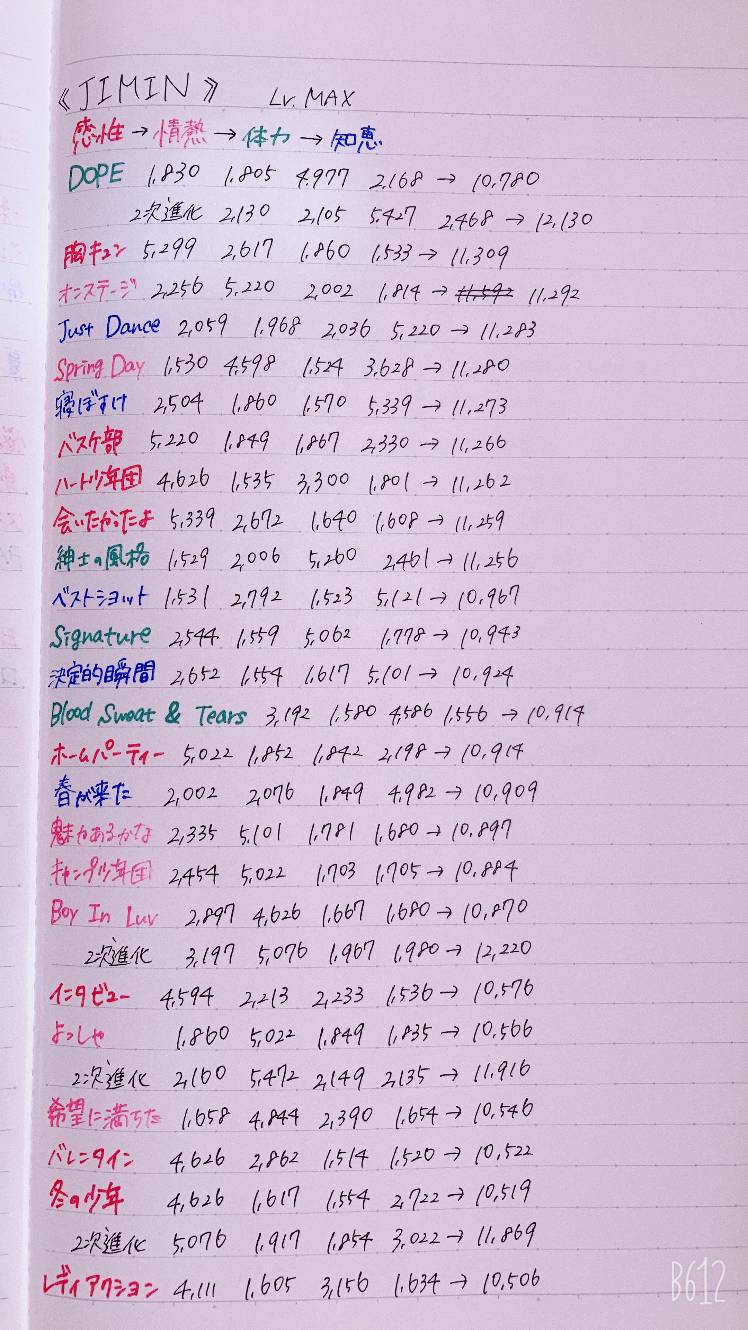 《JIMIN》 Lv. MAX
感性→情熱→体力→知恵
DOPE 1,830 1,805 4,977 2,168→10,780
2次進化 2,130 2,105 5,427 2,468→12,130
胸キュン 5,299 2,617 1,860 1,533→11,309
オンステージ 2,256 5,220 2,002 1,814→11,592 11,292
Just Dance 2,059 1,968 2,036 5,220→11,283
Spring Day 1,530 4,598 1,524 3,628→11,280
寝ぼすけ 2,504 1,860 1,570 5,339→11,273
バスケ部 5,220 1,849 1,867 2,330→11,266
ハート少年団 4,626 1,535 3,300 1,801→11,262
会いたかったよ 5,339 2,672 1,640 1,608→11,259
紳士の風格 1,529 2,006 5,260 2,461→11,256
ベストショット 1,531 2,792 1,523 5,121→10,967
Signature 2,544 1,559 5,062 1,778→10,943
決定的瞬間 2,652 1,554 1,617 5,101→10,924
Blood Sweat & Tears 3,192 1,580 4,586 1,556→10,914
ホームパーティー 5,022 1,852 1,842 2,198→10,914
春が来た 2,002 2,076 1,849 4,982→10,909
魅力あるかな 2,335 5,101 1,781 1,680→10,897
キャンプ少年団 2,454 5,022 1,703 1,705→10,884
Boy In Luv 2,897 4,626 1,667 1,680→10,870
2次進化 3,197 5,076 1,967 1,980→12,220
インタビュー 4,594 2,213 2,233 1,536→10,576
よっしゃ 1,860 5,022 1,849 1,835→10,566
2次進化 2,160 5,472 2,149 2,135→11,916
希望に満ちた 1,658 4,844 2,390 1,654→10,546
バレンタイン 4,626 2,862 1,514 1,520→10,522
冬の少年 4,626 1,617 1,554 2,722→10,519
2次進化 5,076 1,917 1,854 3,022→11,869
レディアクション 4,111 1,605 3,156 1,634→10,506
B612